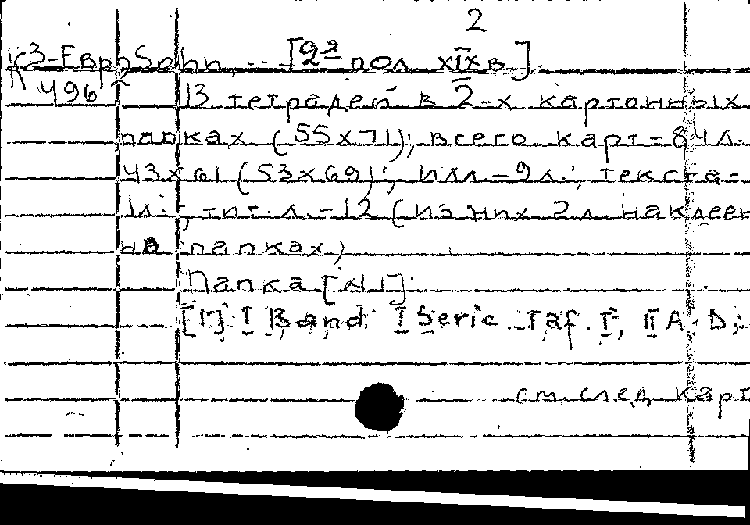 2
К3-Евр Sohn, - [2я пол XIX в]
496 13 тетрадей в 2-х картонных
папках (55x71); всего карт - 84 л.
43x61 (53x69); илл. - 9 л.; текста -
1 л.; тит. л. - 12 (из них 2 л. наклеен
на папках)
Папка [N I].
[1] I Band I Serie. Taf. I, II A-D;
см. след карт